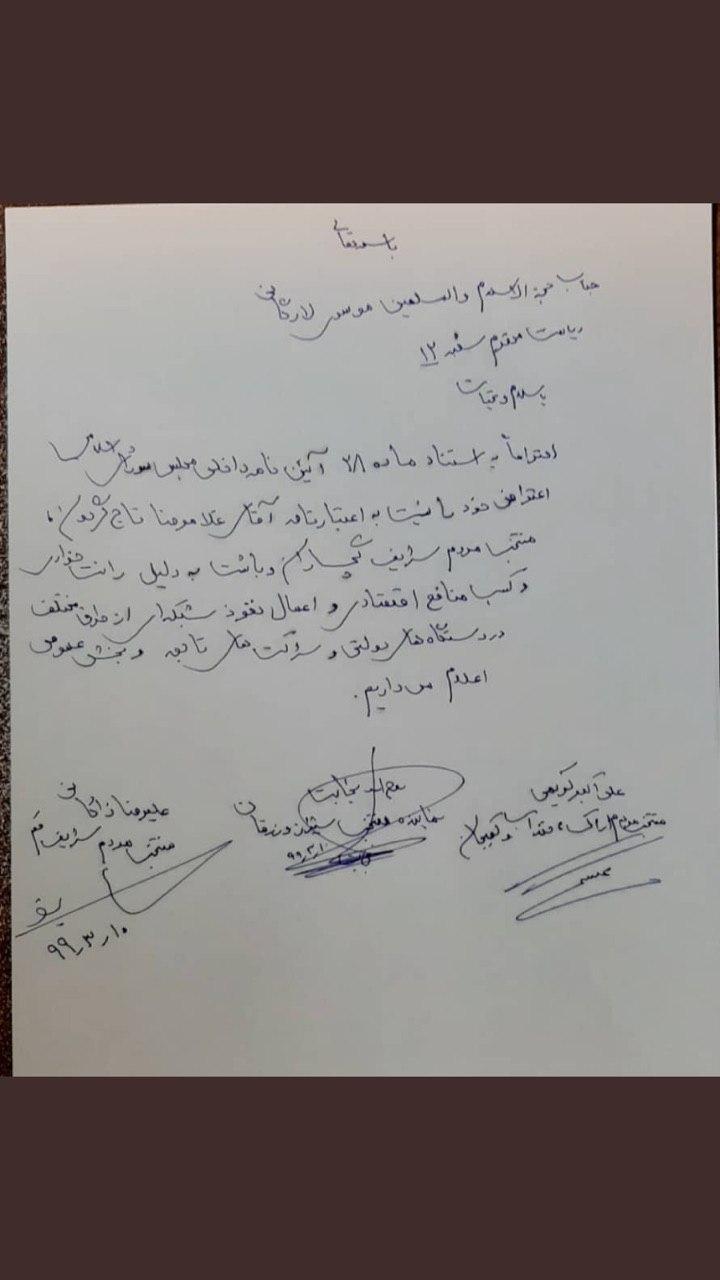 باسمه‌تعالی
جناب حجة الاسلام والمسلمین موسوی لارگانی
ریاست محترم شعبه ۱۲
باسلام و تحیات
احتراماً به استناد ماده ۲۸ آئین نامه داخلی مجلس شورای اسلامی
اعتراض خود را نسبت به اعتبارنامه آقای غلامرضا تاج گردون،
منتخب مردم شریف گچساران و باشت به دلیل رانت خواری
و کسب منافع اقتصادی و اعمال نفوذ شبکه‌ای از طرق مختلف
در دستگاه‌های دولتی و شرکت های تابعه و بخش عمومی
اعلام می داریم.
علی اکبر کریمی
منتخب مردم اراک، خنداب و کمیجان
روح اله نجابت
نماینده منتخب شیراز و زرقان
۹۹,۳,۱۰
علیرضا زاکانی
منتخب مردم شریف قم
۹۹,۳,۱۰